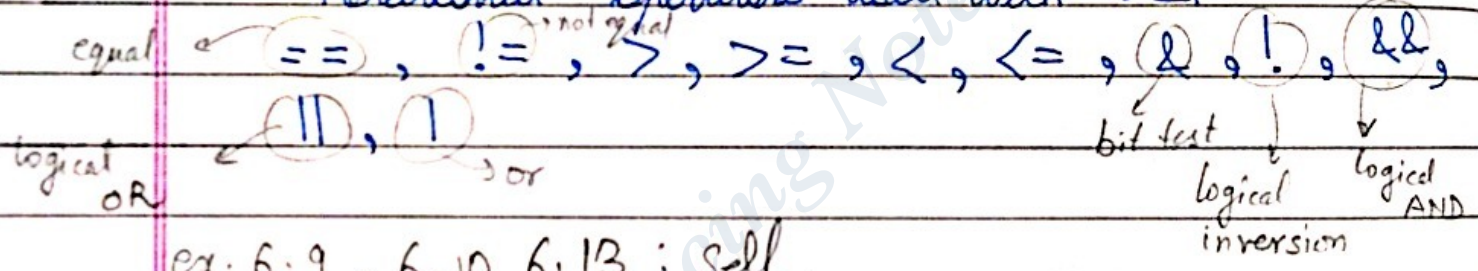 equal == , != , > , >= , < , <= , & , ! , && ,
not equal
|| , |
bit test
logical OR
or
logical inversion
logical AND
ex. 6.9 6.10 6.13 : Self